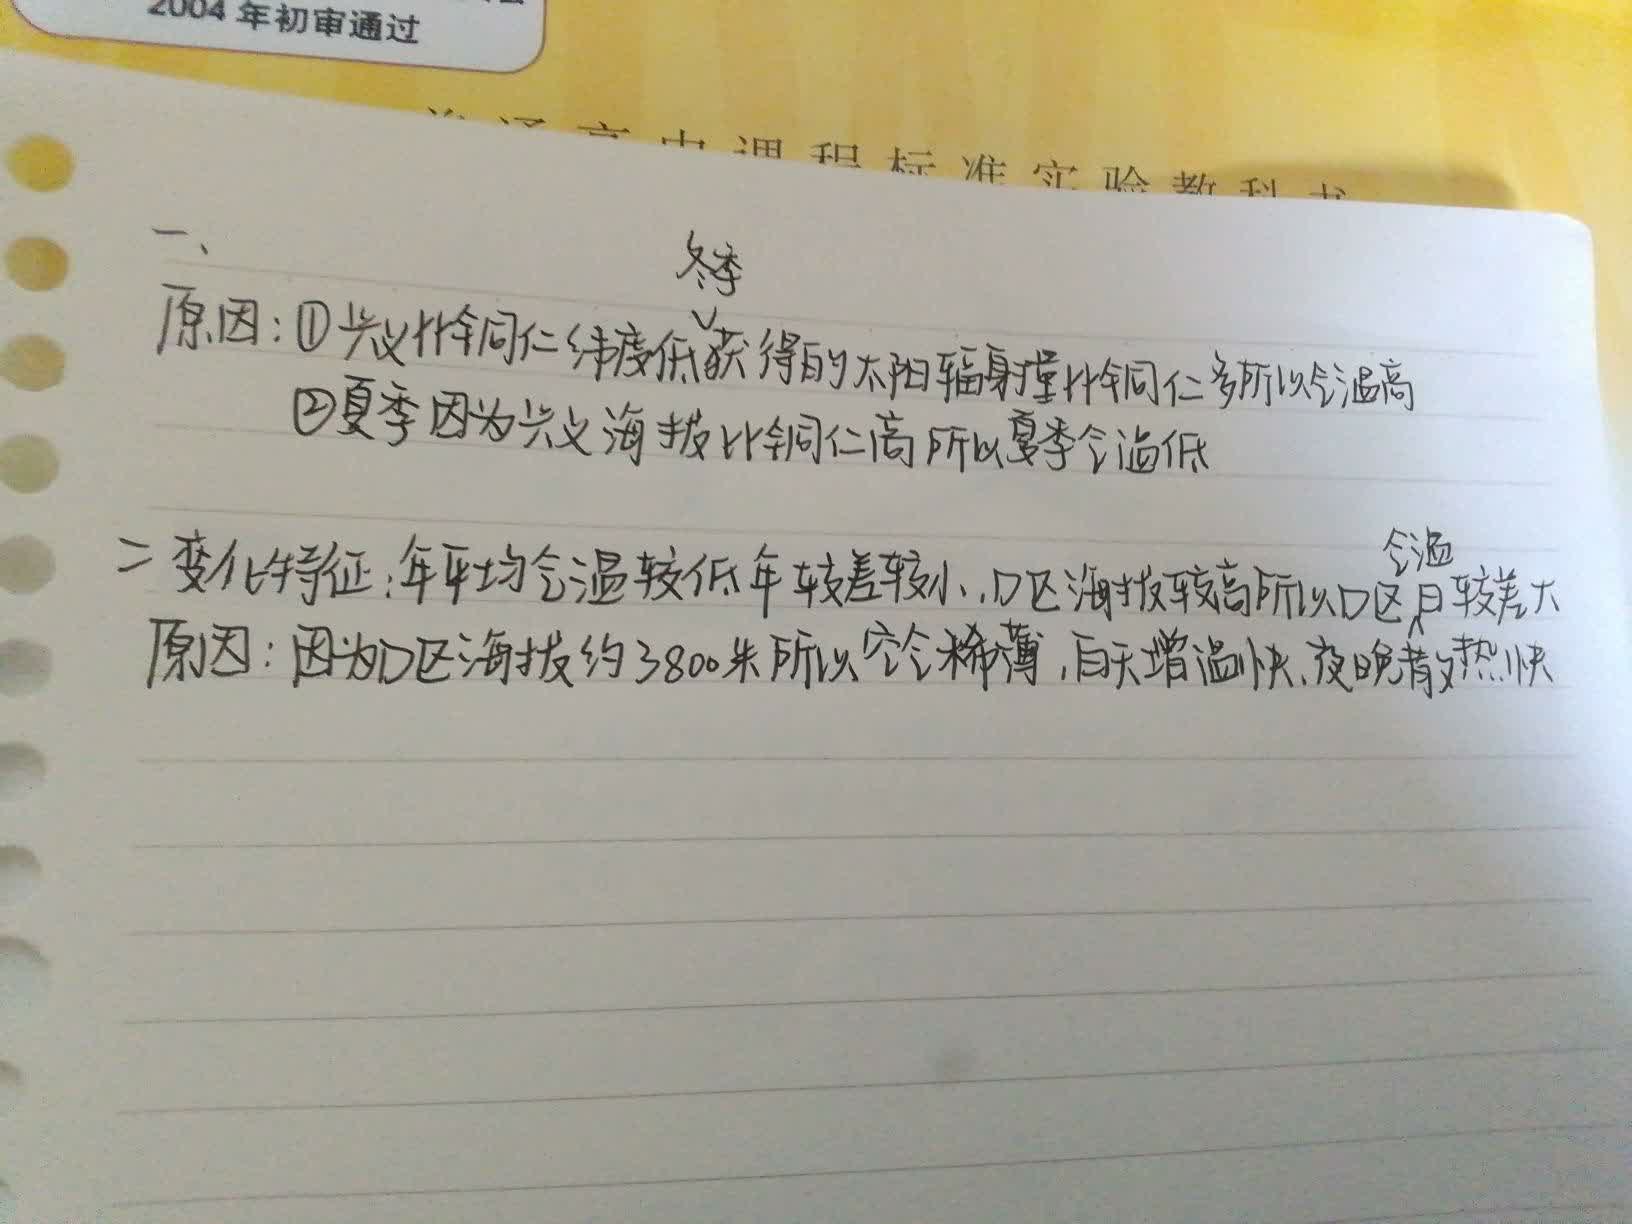 2004年初审通过
普通高中课程标准实验教科书
一、
冬季
原因:①兴义比铜仁纬度低获得的太阳辐射量比铜仁多所以气温高
②夏季因为兴义海拔比铜仁高所以夏季气温低
气温
二变化特征:年平均气温较低年较差较小、D区海拔较高所以D区日较差大
原因:因为D区海拔约3800米所以空气稀薄,白天增温快、夜晚散热快